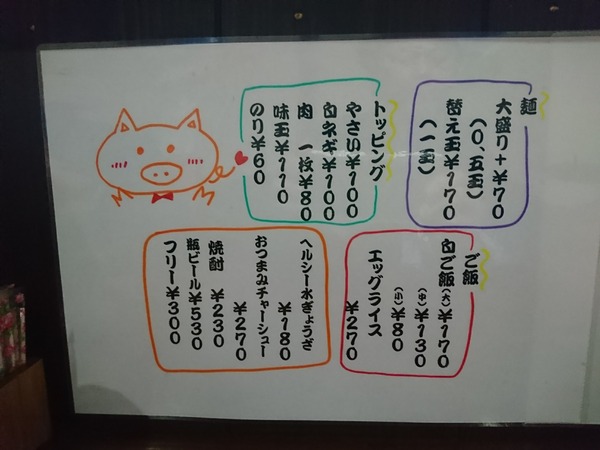 麺
大盛り+¥70
(0、五玉)
替え玉¥170
(一玉)
トッピング
やさい¥100
白ネギ¥100
肉 一枚¥80
味玉¥110
のり¥60
ご飯
白ご飯(大)¥170
(中)¥130
(小)¥80
エッグライス
¥270
ヘルシー水ぎょうざ
¥180
おつまみチャーシュー
¥270
焼酎 ¥230
瓶ビール¥530
フリー¥300